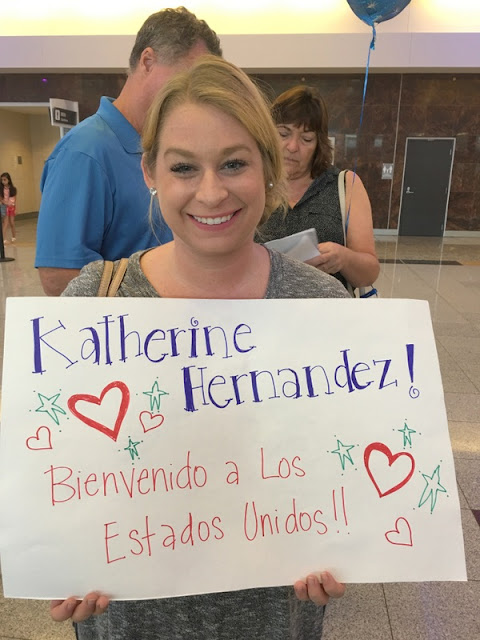 Katherine
Hernandez!
Bienvenido a Los
Estados Unidos!!